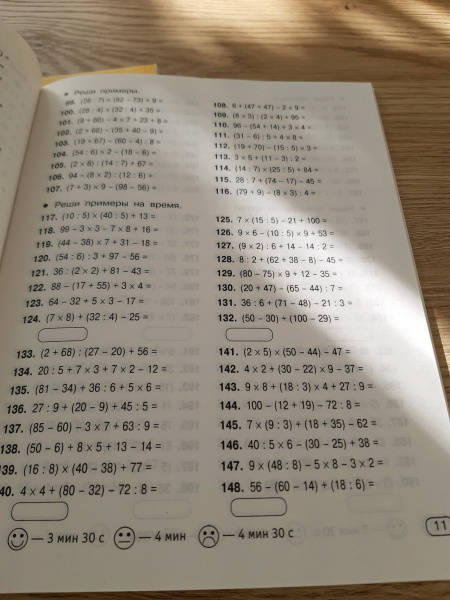 • Реши примеры.
100. (28 : 4) × (32 : 4) + 35 =
101. (9 + 66) – 4 × 7 + 23 + 8 =
102. (2 × 68) – (35 + 40 – 9) =
103. (19 + 67) – (60 – 4) : 8 =
104. (54 : 6) × 2 – (18 – 6) =
105. (2 × 8) : (14 : 7) + 67 =
106. 94 – (8 × 2) : (12 : 6) =
107. (7 + 3) × 9 – (98 – 56) =
• Реши примеры на время.
117. (10 : 5) × (40 : 5) + 13 =
118. 99 – 3 × 3 – 7 × 8 + 16 =
119. (44 – 38) × 7 + 31 – 18 =
120. (54 : 6) : 3 + 97 – 56 =
121. 36 : (2 × 2) + 81 – 43 =
122. 88 – (17 + 55) + 3 × 4 =
123. 64 – 32 + 5 × 3 – 17 =
124. (7 × 8) + (32 : 4) – 25 =
133. (2 + 68) : (27 – 20) + 56 =
134. 20 : 5 + 7 × 3 + 7 × 2 – 12 =
135. (81 – 34) + 36 : 6 + 5 × 6 =
136. 27 : 9 + (20 – 9) + 45 : 5 =
137. (85 – 60) – 3 × 7 + 63 : 9 =
138. (50 – 6) + 8 × 5 + 13 – 14 =
139. (16 : 8) × (40 – 38) + 77 =
40. 4 × 4 + (80 – 32) – 72 : 8 =
108. 6 + (47 + 47) – 2 × 9 =
109. (8 × 3) : (2 × 4) + 95 =
110. 96 – (54 + 14) + 3 × 4 =
111. (31 – 6) : 5 + 4 × 8 =
112. (19 + 70) – (15 : 5) × 3 =
113. 3 × 5 + (11 – 3) : 2 =
114. (14 : 7) × (25 : 5) + 84 =
115. 28 : 7 + (74 – 17) – 45 =
116. (79 + 9) – (8 × 3) : 4 =
125. 7 × (15 : 5) – 21 + 100 =
126. 9 × 6 – (10 : 5) × 9 + 53 =
127. (9 × 2) : 6 + 14 – 14 : 2 =
128. 8 : 2 + (62 + 38 – 8) – 45 =
129. (80 – 75) × 9 + 12 – 35 =
130. (20 + 47) – (65 – 44) : 7 =
131. 36 : 6 + (71 – 48) – 21 : 3 =
132. (50 – 30) + (100 – 29) =
141. (2 × 5) × (50 – 44) – 47 =
142. 4 × 2 + (30 – 22) × 9 – 37 =
143. 9 × 8 + (18 : 3) × 4 + 27 : 9 =
144. 100 – (12 + 19) – 72 : 8 =
145. 7 × (9 : 3) + (18 + 35) – 62 =
146. 40 : 5 × 6 – (30 – 25) + 38 =
147. 9 × (48 : 8) – 5 × 8 – 3 × 2 =
148. 56 – (60 – 14) + (18 : 6) =
— 3 мин 30 с — 4 мин — 4 мин 30 с
11